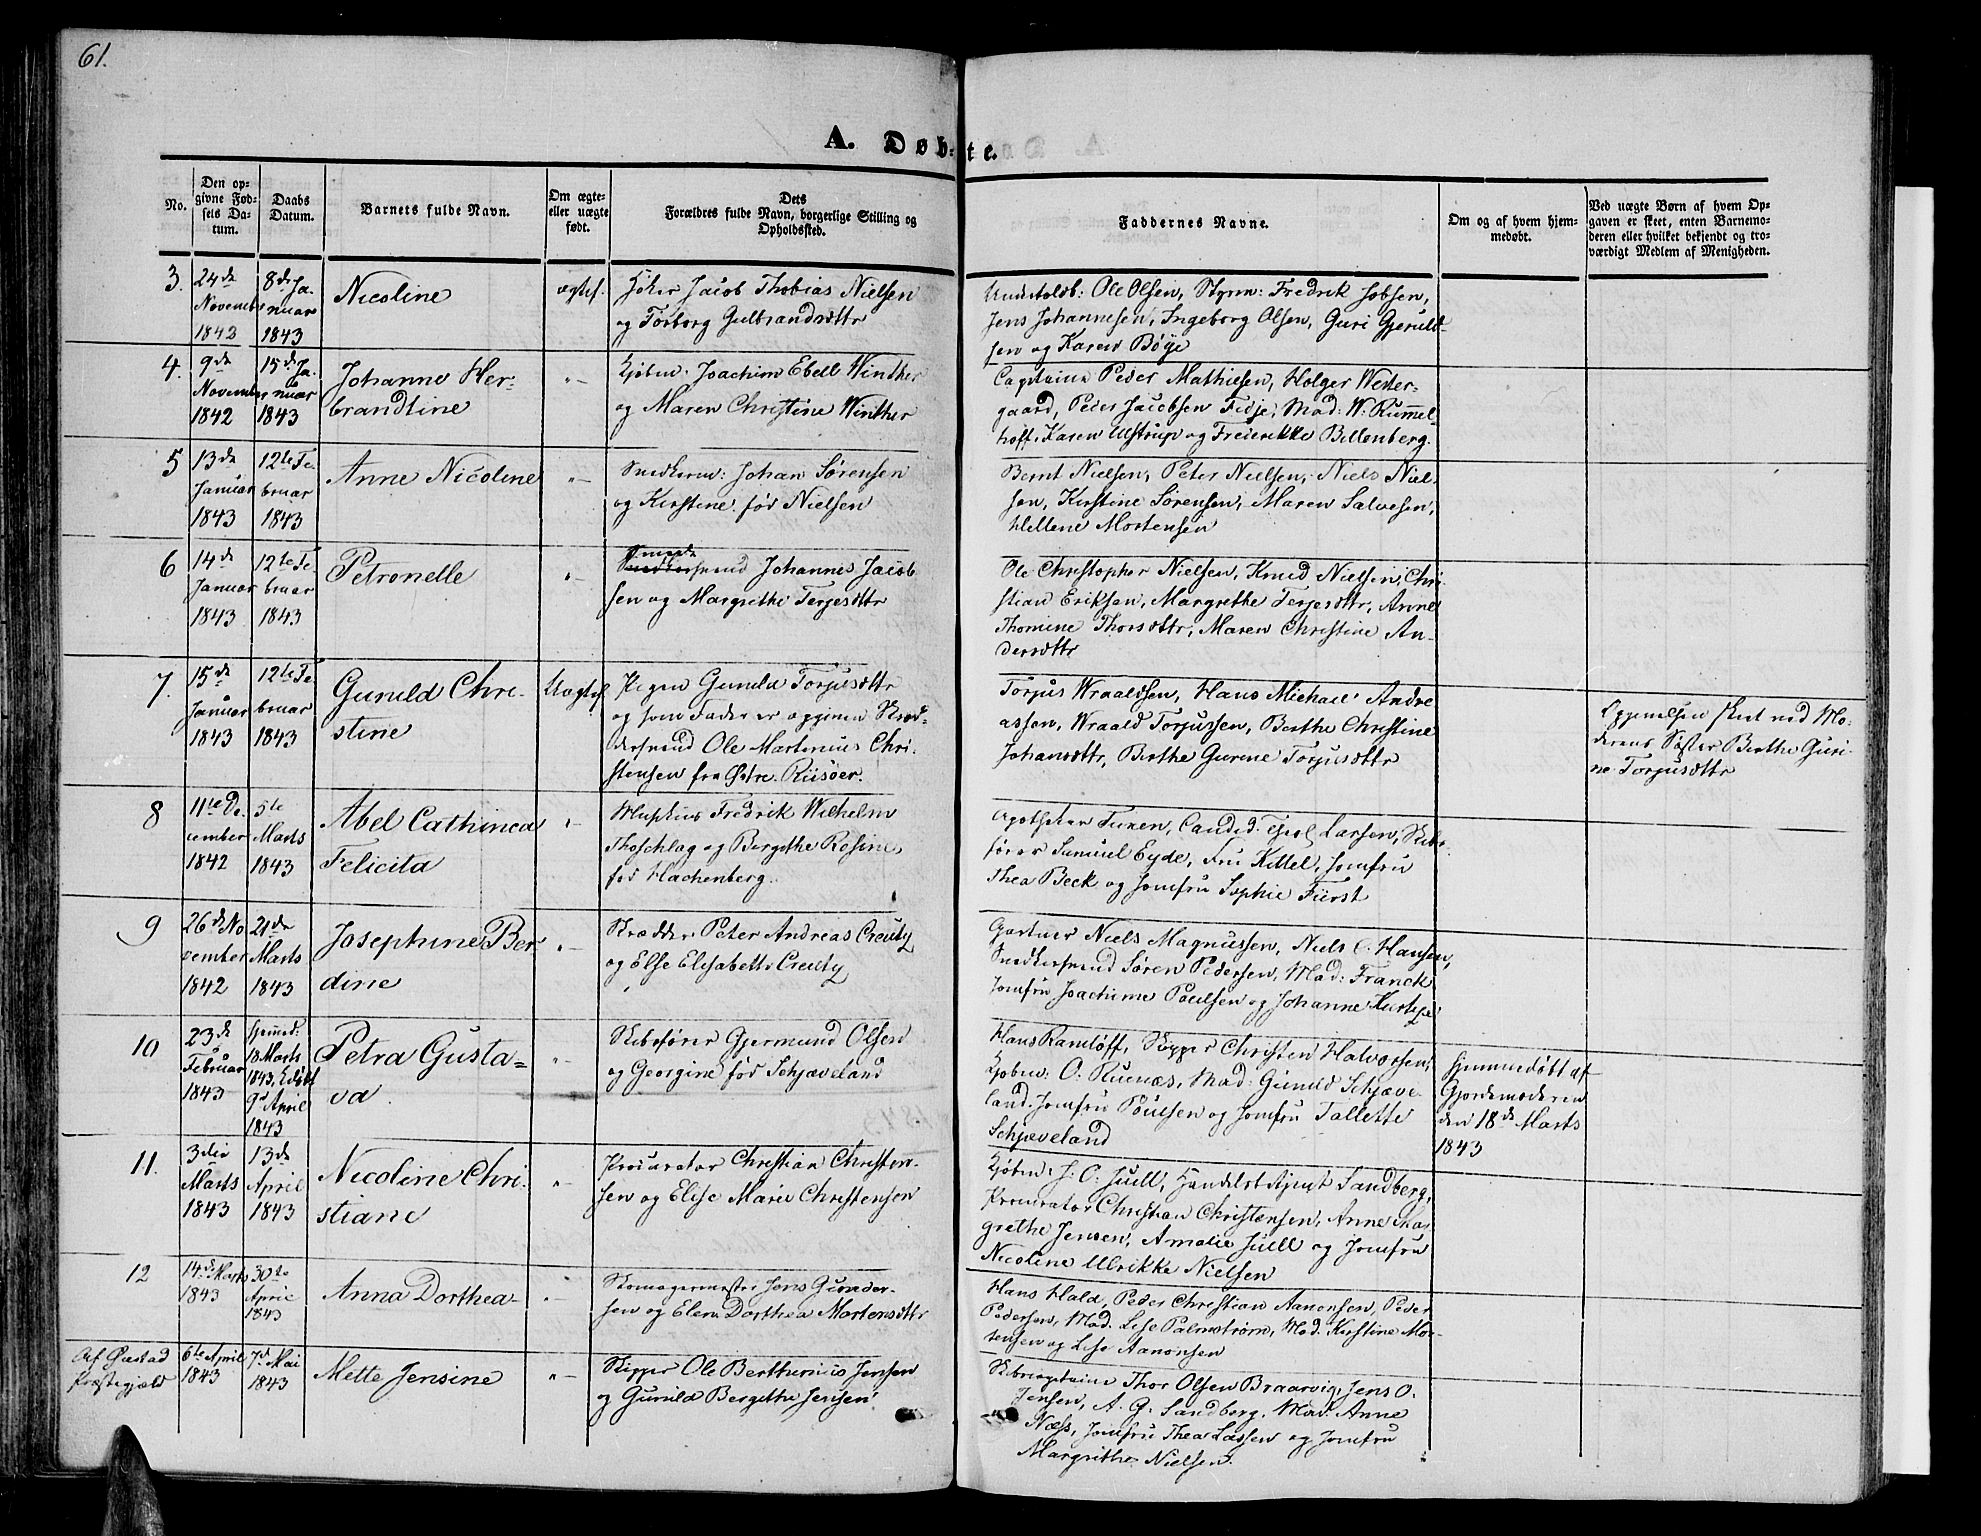 61.
A. Døbte.
No.
Den opgivne Fødsels Datum.
Daabs Datum.
Barnets fulde Navn.
Om ægte eller uægte født.
Dets Forældres fulde Navn, borgerlige Stilling og Opholdssted.
Faddernes Navne.
Om og af hvem hjemmedøbt.
Ved uægte Børn af hvem Opgaven er skeet, enten Barnemoderen eller hvilket bekjendt og troværdigt Medlem af Menigheden.
3.
24de
Novembr
1842
8de Ja-
nuar
1843
Nicoline
ægtef.
Jacob Thobias Nielsen
og Torborg Gulbrandsdttr
Ole Olsen, Styrm: Fredrik Jobsen,
Jens Johannesen, Ingeborg Olsen, Guri Gjeruld-
sen og Karen Böye
4.
9de
Novembr
1842
15de Ja-
nuar
1843
Johanne Her-
brandtine
"–
Kjöbm: Joachim Ebell Winther
og Maren Christine Winther
Capitaine Peder Mathiesen, Holger Weder-
gaard, Peder Jacobsen Fidje, Mad: W. Rummel-
hoff, Karen Ulstrup og Frederikke Billenberg.
5
13de
Januar
1843
12te Fe-
bruar
1843
Anne Nicoline
"–
Snedkerm: Johan Sørensen
og Kirstine født Nielsen
Bernt Nielsen, Peter Nielsen, Niels Niel-
sen, Kirstine Sørensen, Maren Salvesen,
Hellene Mortensen
6
14de
Januar
1843
12te Fe-
bruar
1843
Petronelle
"–
Smede
Snedkersvend Johannes Jacob-
sen og Margrithe Terjesdttr
Ole Christopher Nielsen, Knud Nielsen, Chri-
stian Eriksen, Margrethe Terjesdttr, Anne
Thomine Thorsdttr, Maren Christine An-
dersdttr
7.
15de
Januar
1843
12te Fe-
bruar
1843
Gunild Chri-
stine
Uægtef
Pigen Gunild Torjusdttr
og som Fader er opgiven Skræd-
dersvend Ole Martinius Chri-
stensen fra Østre Riisöer.
Torjus Wraaldsen, Hans Michael Andre-
assen, Wraald Torjussen, Berthe Christine
Johansdttr, Berthe Gurine Torjusdttr
Opgivelsen skeet ved Mo-
derens Søster Berthe Guri-
ne Torjusdttr
8
11te De-
cember
1842
5te
Marts
1843
Abel Cathinca
Felicita
"–
Musikus Fredrik Wilhelm
Thoschlag og Bergithe Rosine
fød Hachenberg.
Apotheker Tuxen, Candid. Theol Larsen, Skibs-
fører Samuel Eyde, Fru Kittel, Jomfru
Thea Beck og Jomfru Sophie Fürst
9
26de No-
vember
1842
21de
Marts
1843
Josephine Ber-
dine
"–
Skrædder Peter Andreas Creutz
og Else Elisabeth Creutz
Gartner Niels Magnussen, Niels C. Hansen,
Snedkersvend Søren Pedersen, Mad: Franck
Jomfru Joachime Poulsen og Johanne
10
23de
Februar
1843
hjemmed.
18 Marts
1843,
9de April
1843
Petra Gusta-
va.
"–
Skibsfører Gjermund Olsen
og Georgine fød Schjæveland
Hans Ramløff, Skipper Christen Halvorsen,
Kjöbm: O. Ruenæs, Mad: Gunild Schjæve-
land, Jomfru Poulsen og Jomfru Tallette
Schjæveland
Hjemmedøbt af
Gjordemoderen
den 18de Marts
1843
11.
3die
Marts
1843
13de
April
1843
Nicoline Chri-
stiane
"–
Procurator Christian Christen-
sen og Elise Marie Christensen
Kjöbm: J. O. Juell, Handelst Agent Sandberg,
Procurator Christian Christensen, Anne Mar-
grethe Jensen, Amalie Juell og Jomfru
Nicoline Ulrikke Nielsen
12
14de Marts
1843
30te
April
1843
Anna Dorthea
"–
Skomagermester Jens Gunder-
sen og Elen Dorthea Mortensdttr
Hans Hald, Peder Christian Aanonsen, Peder
Pedersen, Mad. Lise Palmstrøm, Mad. Kirstine Mor-
tensen og Lise Aanonsen
Af Øiestad
Præstegjæld
6te April
1843
7de Mai
1843
Mette Jensine
"–
Skipper Ole Berthinius Jensen
og Gunild Bergithe Jensen
Skibscapitaine Thor Olsen Braarvig, Jens O.
Jensen, A. G. Sandberg, Mad. Anne
Næss, Jomfru Thea Lassen og Jomfru
Margrithe Nielsen.